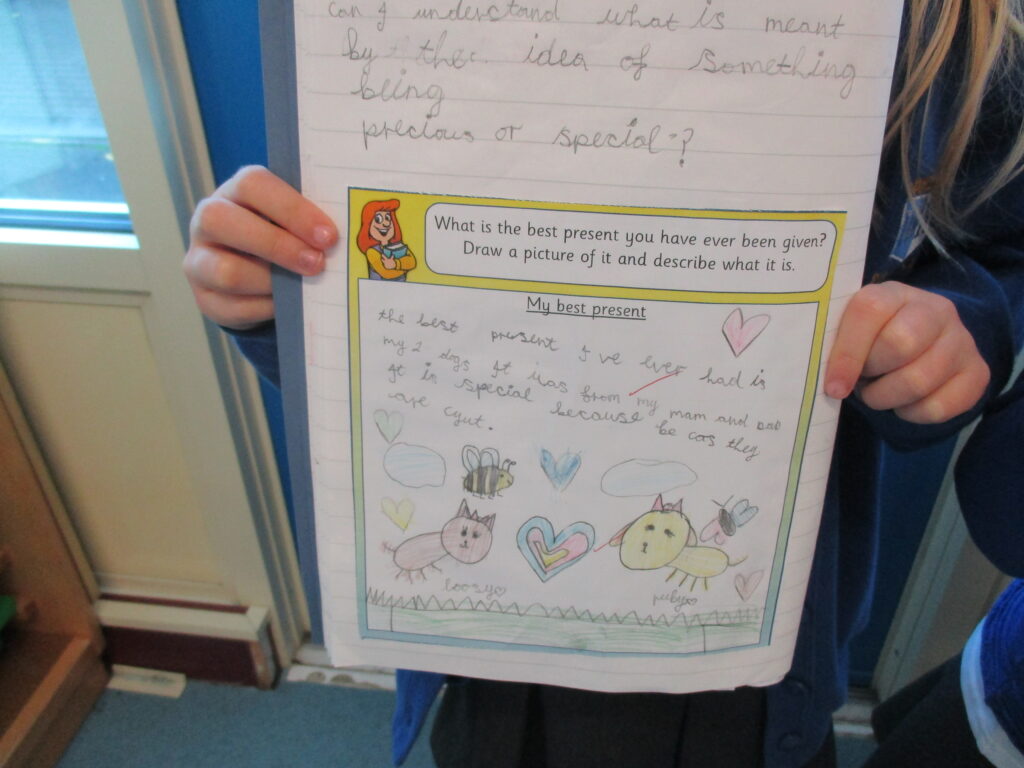 can I understand what is meant
by the idea of something
being
precious or special?
What is the best present you have ever been given?
Draw a picture of it and describe what it is.
My best present
the best present I've ever had is
my 2 dogs It was from my mam and dad
It is special because be cos they
are cyut.